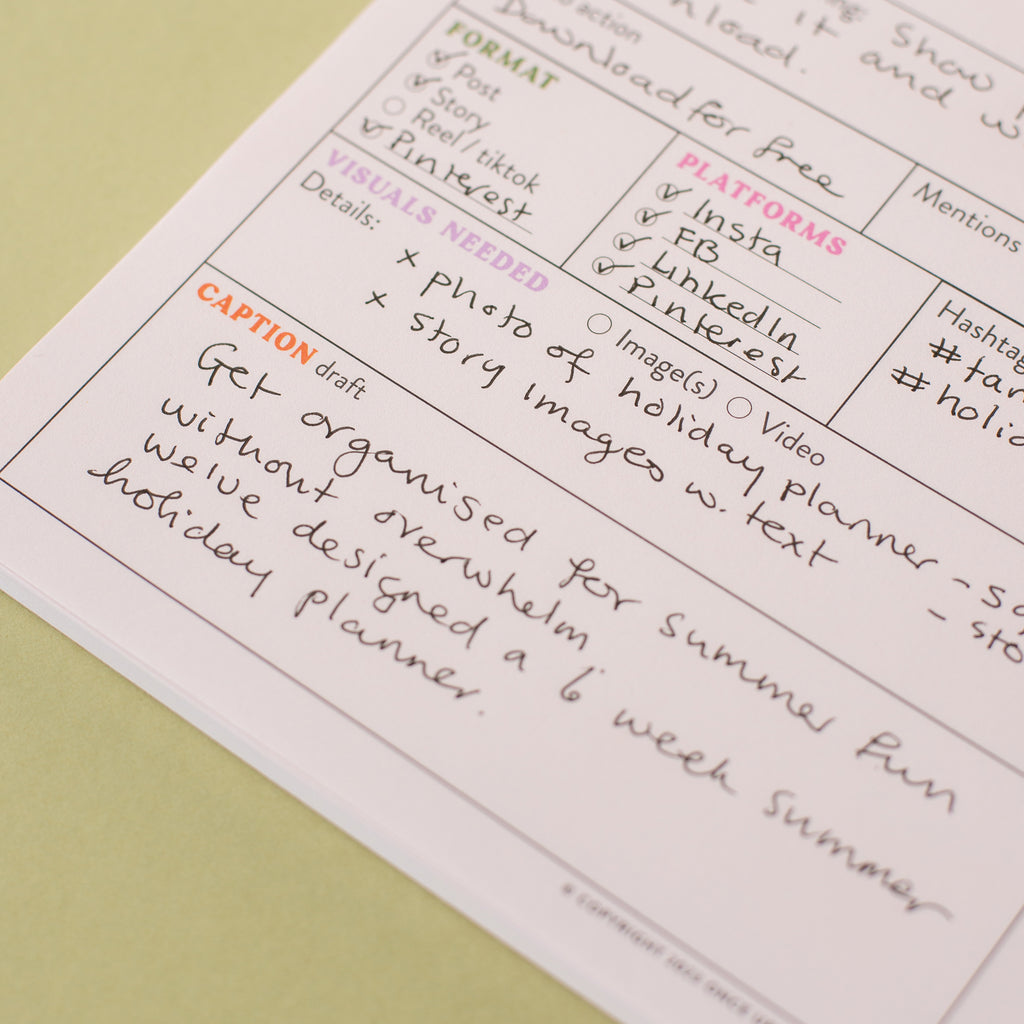 Show
it and
action
Download for free
FORMAT
Post
Story
Reel / tiktok
Pinterest
PLATFORMS
Insta
FB
LinkedIn
Pinterest
Mentions
VISUALS NEEDED
Image(s) Video
Details:
x photo of holiday planner -
x story images w. text -
CAPTION draft
Get organised for summer fun
without overwhelm
we've designed a 6 week summer
holiday planner.
© COPYRIGHT